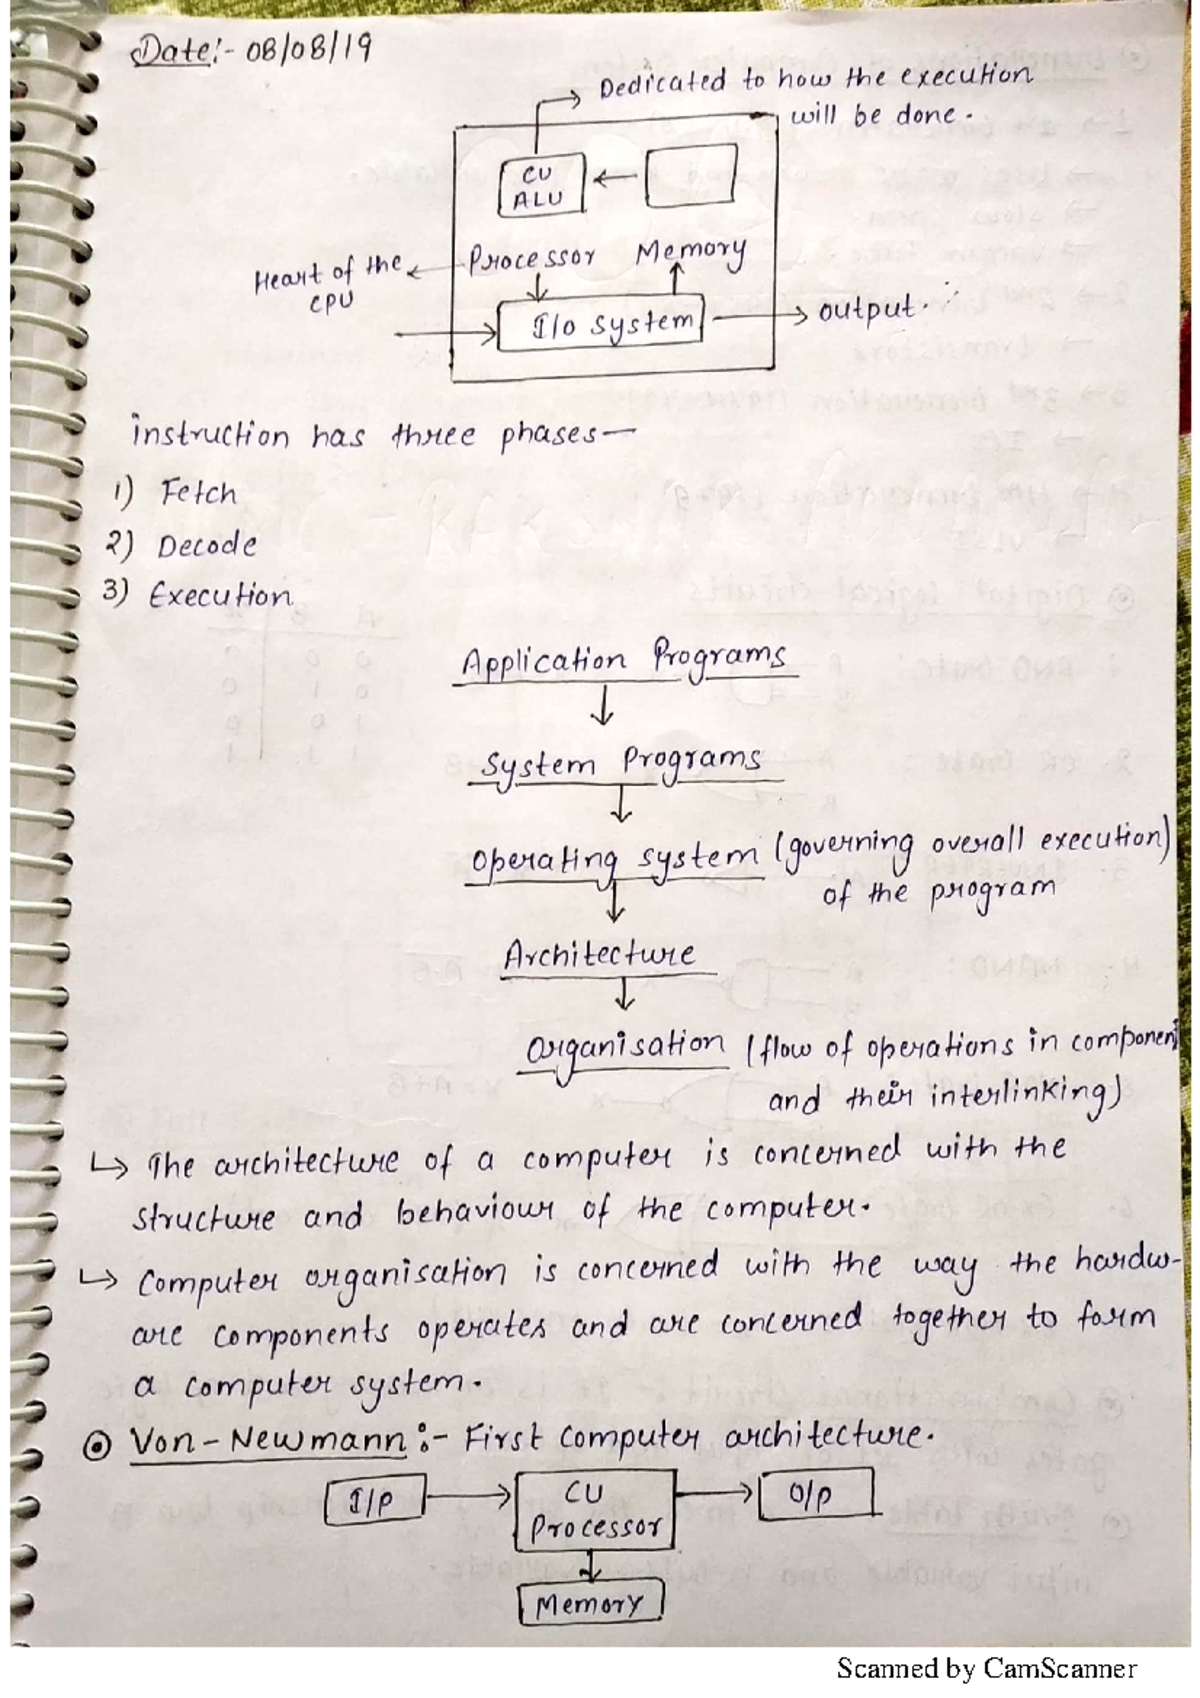 Date:- 08/08/19
Dedicated to how the execution
will be done.
CU
ALU
Processor Memory
Heart of the
CPU
I/o system
output.
instruction has three phases—
1) Fetch
2) Decode
3) Execution
Application Programs
System Programs
Operating system (governing overall execution)
of the program
Architecture
Organisation (flow of operations in component
and their interlinking)
↳ The architecture of a computer is concerned with the
structure and behaviour of the computer.
↳ Computer organisation is concerned with the way the hardw-
are components operates and are concerned together to form
a computer system.
Von-Newmann:- First computer architecture.
I/P
CU
Processor
O/p
Memory
Scanned by CamScanner